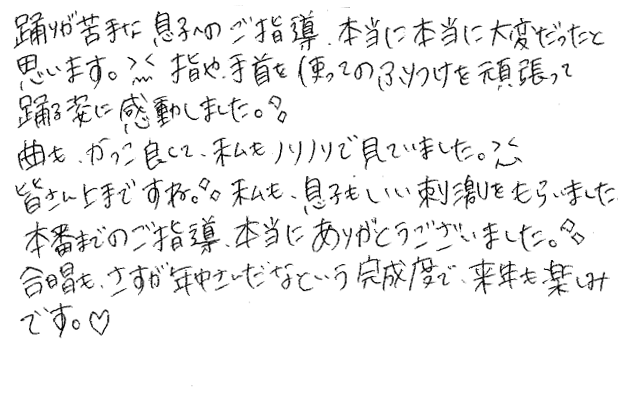 踊りが苦手な息子へのご指導、本当に本当に大変だったと
思います。 指や、手首を使ってのふりつけを頑張って
踊る姿に感動しました。
曲も、かっこ良くて、私もノリノリで見ていました。
皆さん上手ですね。 私も、息子もいい刺激をもらいました。
本番までのご指導、本当にありがとうございました。
合唱も、さすが年中さんだなという完成度で、来年も楽しみ
です。♡